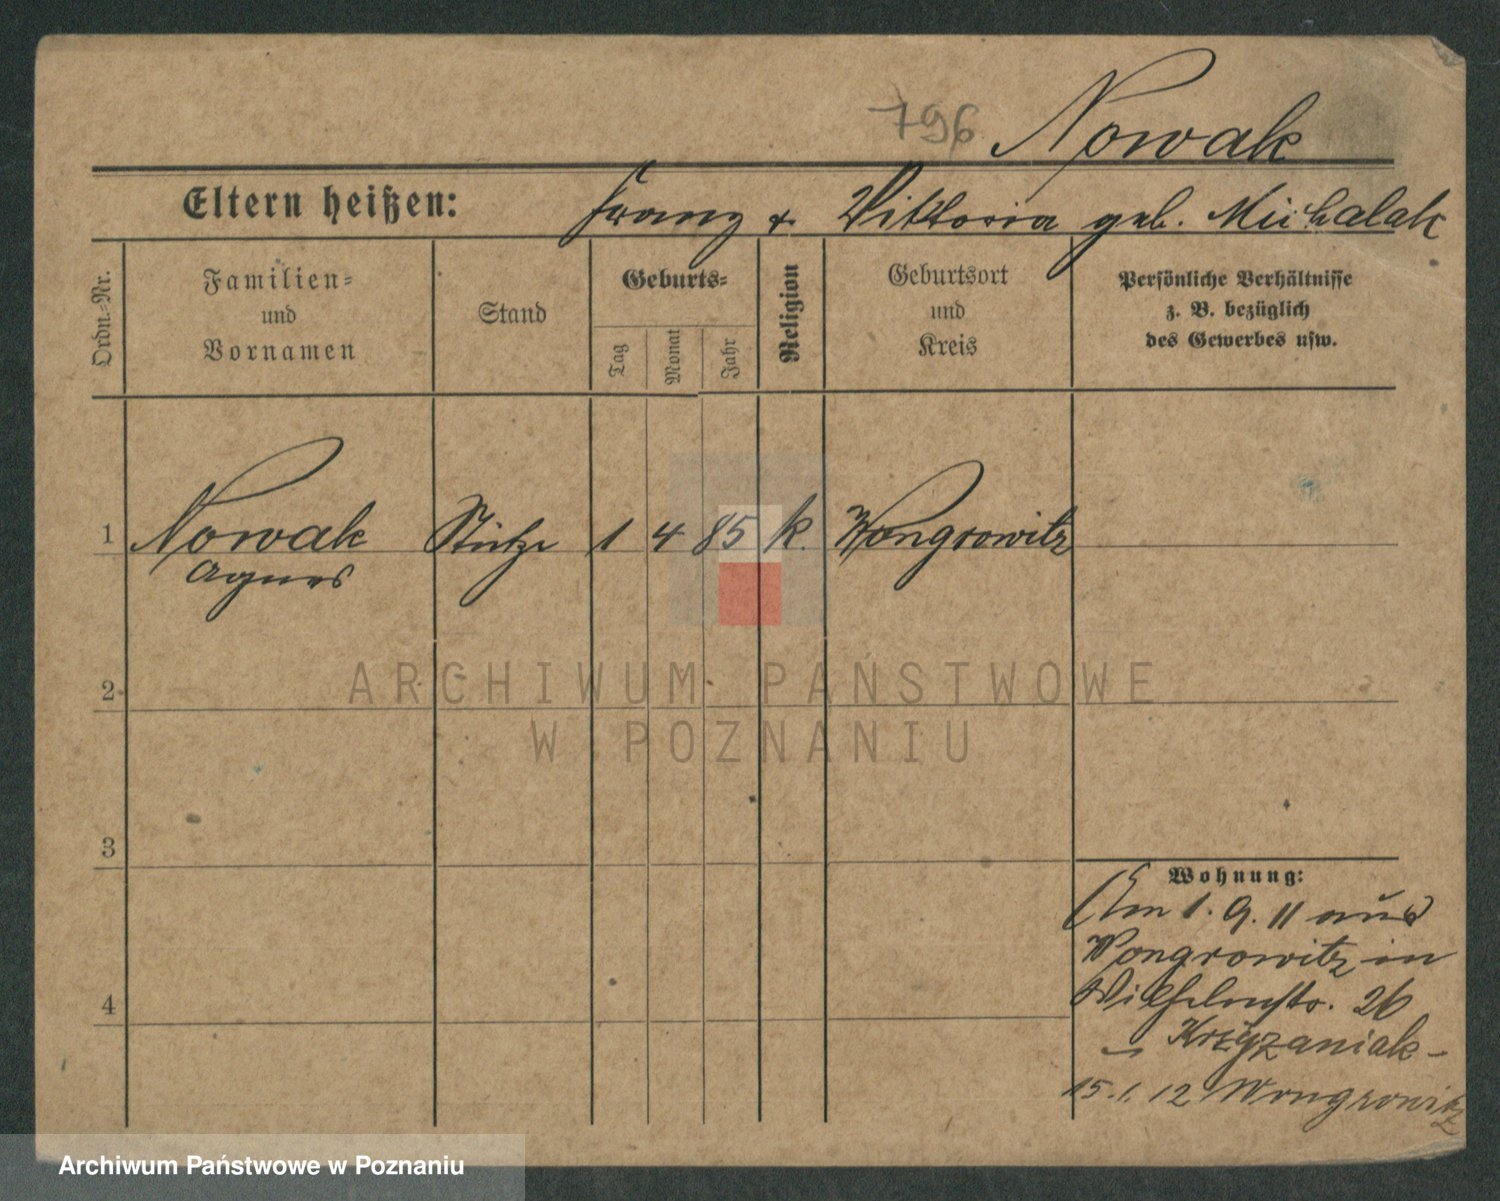 796 Nowak
Eltern heißen: Franz & Viktoria geb. Michalak
Ordn.-Nr.
Familien-
und
Vornamen
Stand
Geburts-
Tag
Monat
Jahr
Religion
Geburtsort
und
Kreis
Persönliche Verhältnisse
z. B. bezüglich
des Gewerbes usw.
1 Nowak Stütze 1 4 85 k. Wongrowitz
Agnes
2
ARCHIWUM PAŃSTWOWE
W POZNANIU
3
4
Wohnung:
Am 1. 9. 11 aus
Wongrowitz in
Wilhelmstr. 26
- Krzyzaniak -
15. 1. 12 Wongrowitz
Archiwum Państwowe w Poznaniu